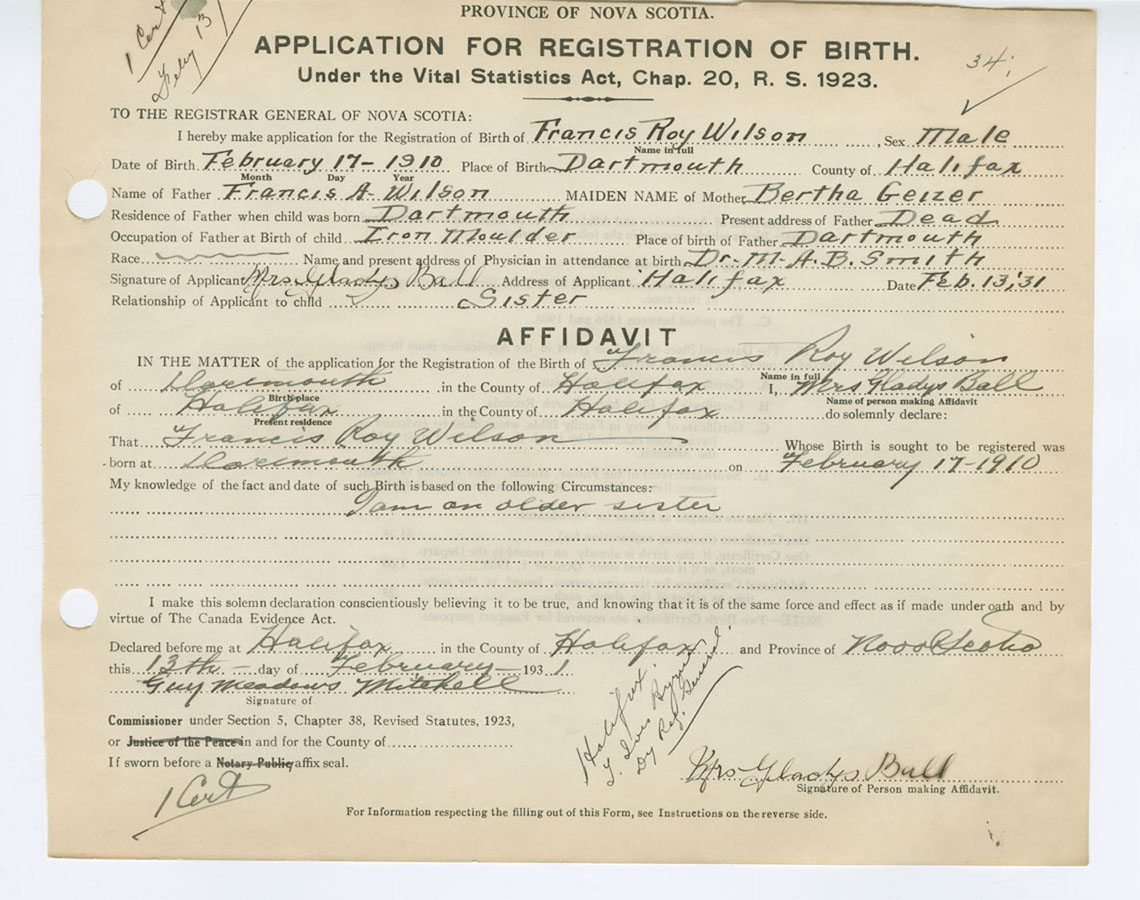 PROVINCE OF NOVA SCOTIA.
1 Cert
Feby 13
APPLICATION FOR REGISTRATION OF BIRTH.
34
Under the Vital Statistics Act, Chap. 20, R. S. 1923.
TO THE REGISTRAR GENERAL OF NOVA SCOTIA:
I hereby make application for the Registration of Birth of Francis Roy Wilson, Sex Male
Name in full
Date of Birth February 17 - 1910 Place of Birth Dartmouth County of Halifax
Month Day Year
Name of Father Francis A. Wilson MAIDEN NAME of Mother Bertha Geizer
Residence of Father when child was born Dartmouth Present address of Father Dead
Occupation of Father at Birth of child Iron Moulder Place of birth of Father Dartmouth
Race Name and present address of Physician in attendance at birth Dr. M. A. B. Smith
Signature of Applicant Mrs. Gladys Ball Address of Applicant Halifax Date Feb. 13, '31
Relationship of Applicant to child Sister
AFFIDAVIT
IN THE MATTER of the application for the Registration of the Birth of Francis Roy Wilson
Name in full
of Dartmouth in the County of Halifax I, Mrs Gladys Ball
Birth place Name of person making Affidavit
of Halifax in the County of Halifax do solemnly declare:
Present residence
That Francis Roy Wilson Whose Birth is sought to be registered was
born at Dartmouth on February 17 - 1910
My knowledge of the fact and date of such Birth is based on the following Circumstances:
I am an older sister
I make this solemn declaration conscientiously believing it to be true, and knowing that it is of the same force and effect as if made under oath and by
virtue of The Canada Evidence Act.
Declared before me at Halifax in the County of Halifax and Province of Nova Scotia
this 13th day of February 1931
Guy Meadows Mitchell
Signature of
Commissioner under Section 5, Chapter 38, Revised Statutes, 1923,
or Justice of the Peace in and for the County of
If sworn before a Notary Public affix seal.
1 Cert
Halifax
Dy Reg. General
Mrs Gladys Ball
Signature of Person making Affidavit.
For Information respecting the filling out of this Form, see Instructions on the reverse side.